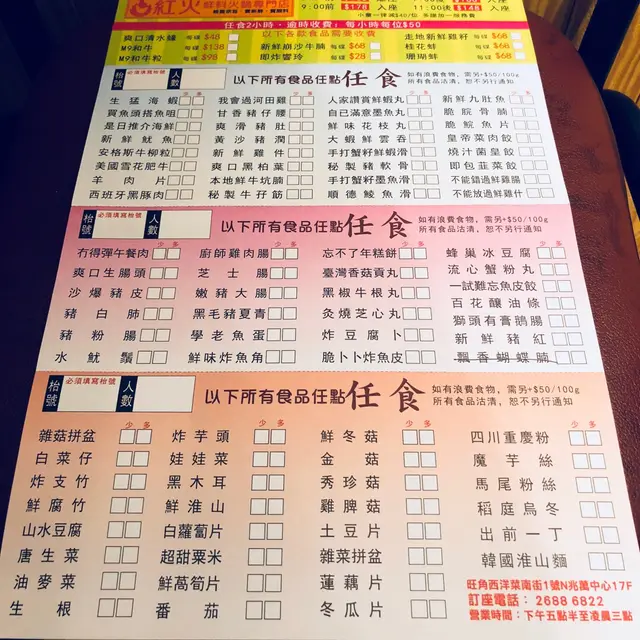 紅火 鮮料火鍋專門店
9:00前 $178 入座 11:00後 $148 入座
小童一律減$40/位 多謝加一服務費
任食2小時，逾時收費：每小時每位$50
以下各款食品需要收費
爽口清水鐽 每碟 $48 走地新鮮雞籽 每碟 $68
M9和牛 每碟 $138 新鮮崩沙牛腩 每碟 $68 桂花蚌 每碟 $68
M9和牛粒 每碟 $98 即炸響玲 每碟 $28 珊瑚蚌 每碟 $68
枱號 必須填寫枱號 人數 以下所有食品任點任食 如有浪費食物，需另+$50/100g
所有食品沽清，恕不另行通知
少 多 少 多 少 多 少 多
生猛海蝦 我會過河田雞 人家讚賞鮮蝦丸 新鮮九肚魚
買魚頭搭魚咀 甘香豬仔腰 自已滿意墨魚丸 脆脘骨腩
是日推介海鮮 爽滑豬肚 鮮味花枝丸 脆脘魚片
新鮮魷魚 黃沙豬潤 大蝦鮮雲吞 皇帝菜肉餃
安格斯牛柳粒 新鮮雞件 手打蟹籽鮮蝦滑 燒汁菌皇餃
美國雪花肥牛 爽口黑柏葉 秘製豬軟骨 即包韮菜餃
羊肉片 本地鮮牛坑腩 手打蟹籽墨魚滑 不能錯過鮮雞腸
西班牙黑豚肉 秘製牛孖筋 順德鯪魚滑 不能放過鮮雞什
枱號 必須填寫枱號 人數 以下所有食品任點任食 如有浪費食物，需另+$50/100g
所有食品沽清，恕不另行通知
少 多 少 多 少 多 少 多
冇得彈午餐肉 廚師雞肉腸 忘不了年糕餅 蜂巢冰豆腐
爽口生腸頭 芝士腸 臺灣香菇貢丸 流心蟹粉丸
沙爆豬皮 嫩豬大腸 黑椒牛根丸 一試難忘魚皮餃
豬白肺 黑毛豬夏青 灸燒芝心丸 百花釀油條
豬粉腸 學老魚蛋 炸豆腐卜 獅頭有膏鵝腸
水魷鬚 鮮味炸魚角 脆卜卜炸魚皮 新鮮豬紅
飄香蝴蝶腩
枱號 必須填寫枱號 人數 以下所有食品任點任食 如有浪費食物，需另+$50/100g
所有食品沽清，恕不另行通知
少 多 少 多 少 多 少 多
雜菇拼盆 炸芋頭 鮮冬菇 四川重慶粉
白菜仔 娃娃菜 金菇 魔芋絲
炸支竹 黑木耳 秀珍菇 馬尾粉絲
鮮腐竹 鮮淮山 雞脾菇 稻庭烏冬
山水豆腐 白蘿蔔片 土豆片 出前一丁
唐生菜 超甜粟米 雜菜拼盆 韓國淮山麵
油麥菜 鮮萵筍片 蓮藕片
生根 番茄 冬瓜片
旺角西洋菜南街1號N兆萬中心17F
訂座電話：2688 6822
營業時間：下午五點半至凌晨三點